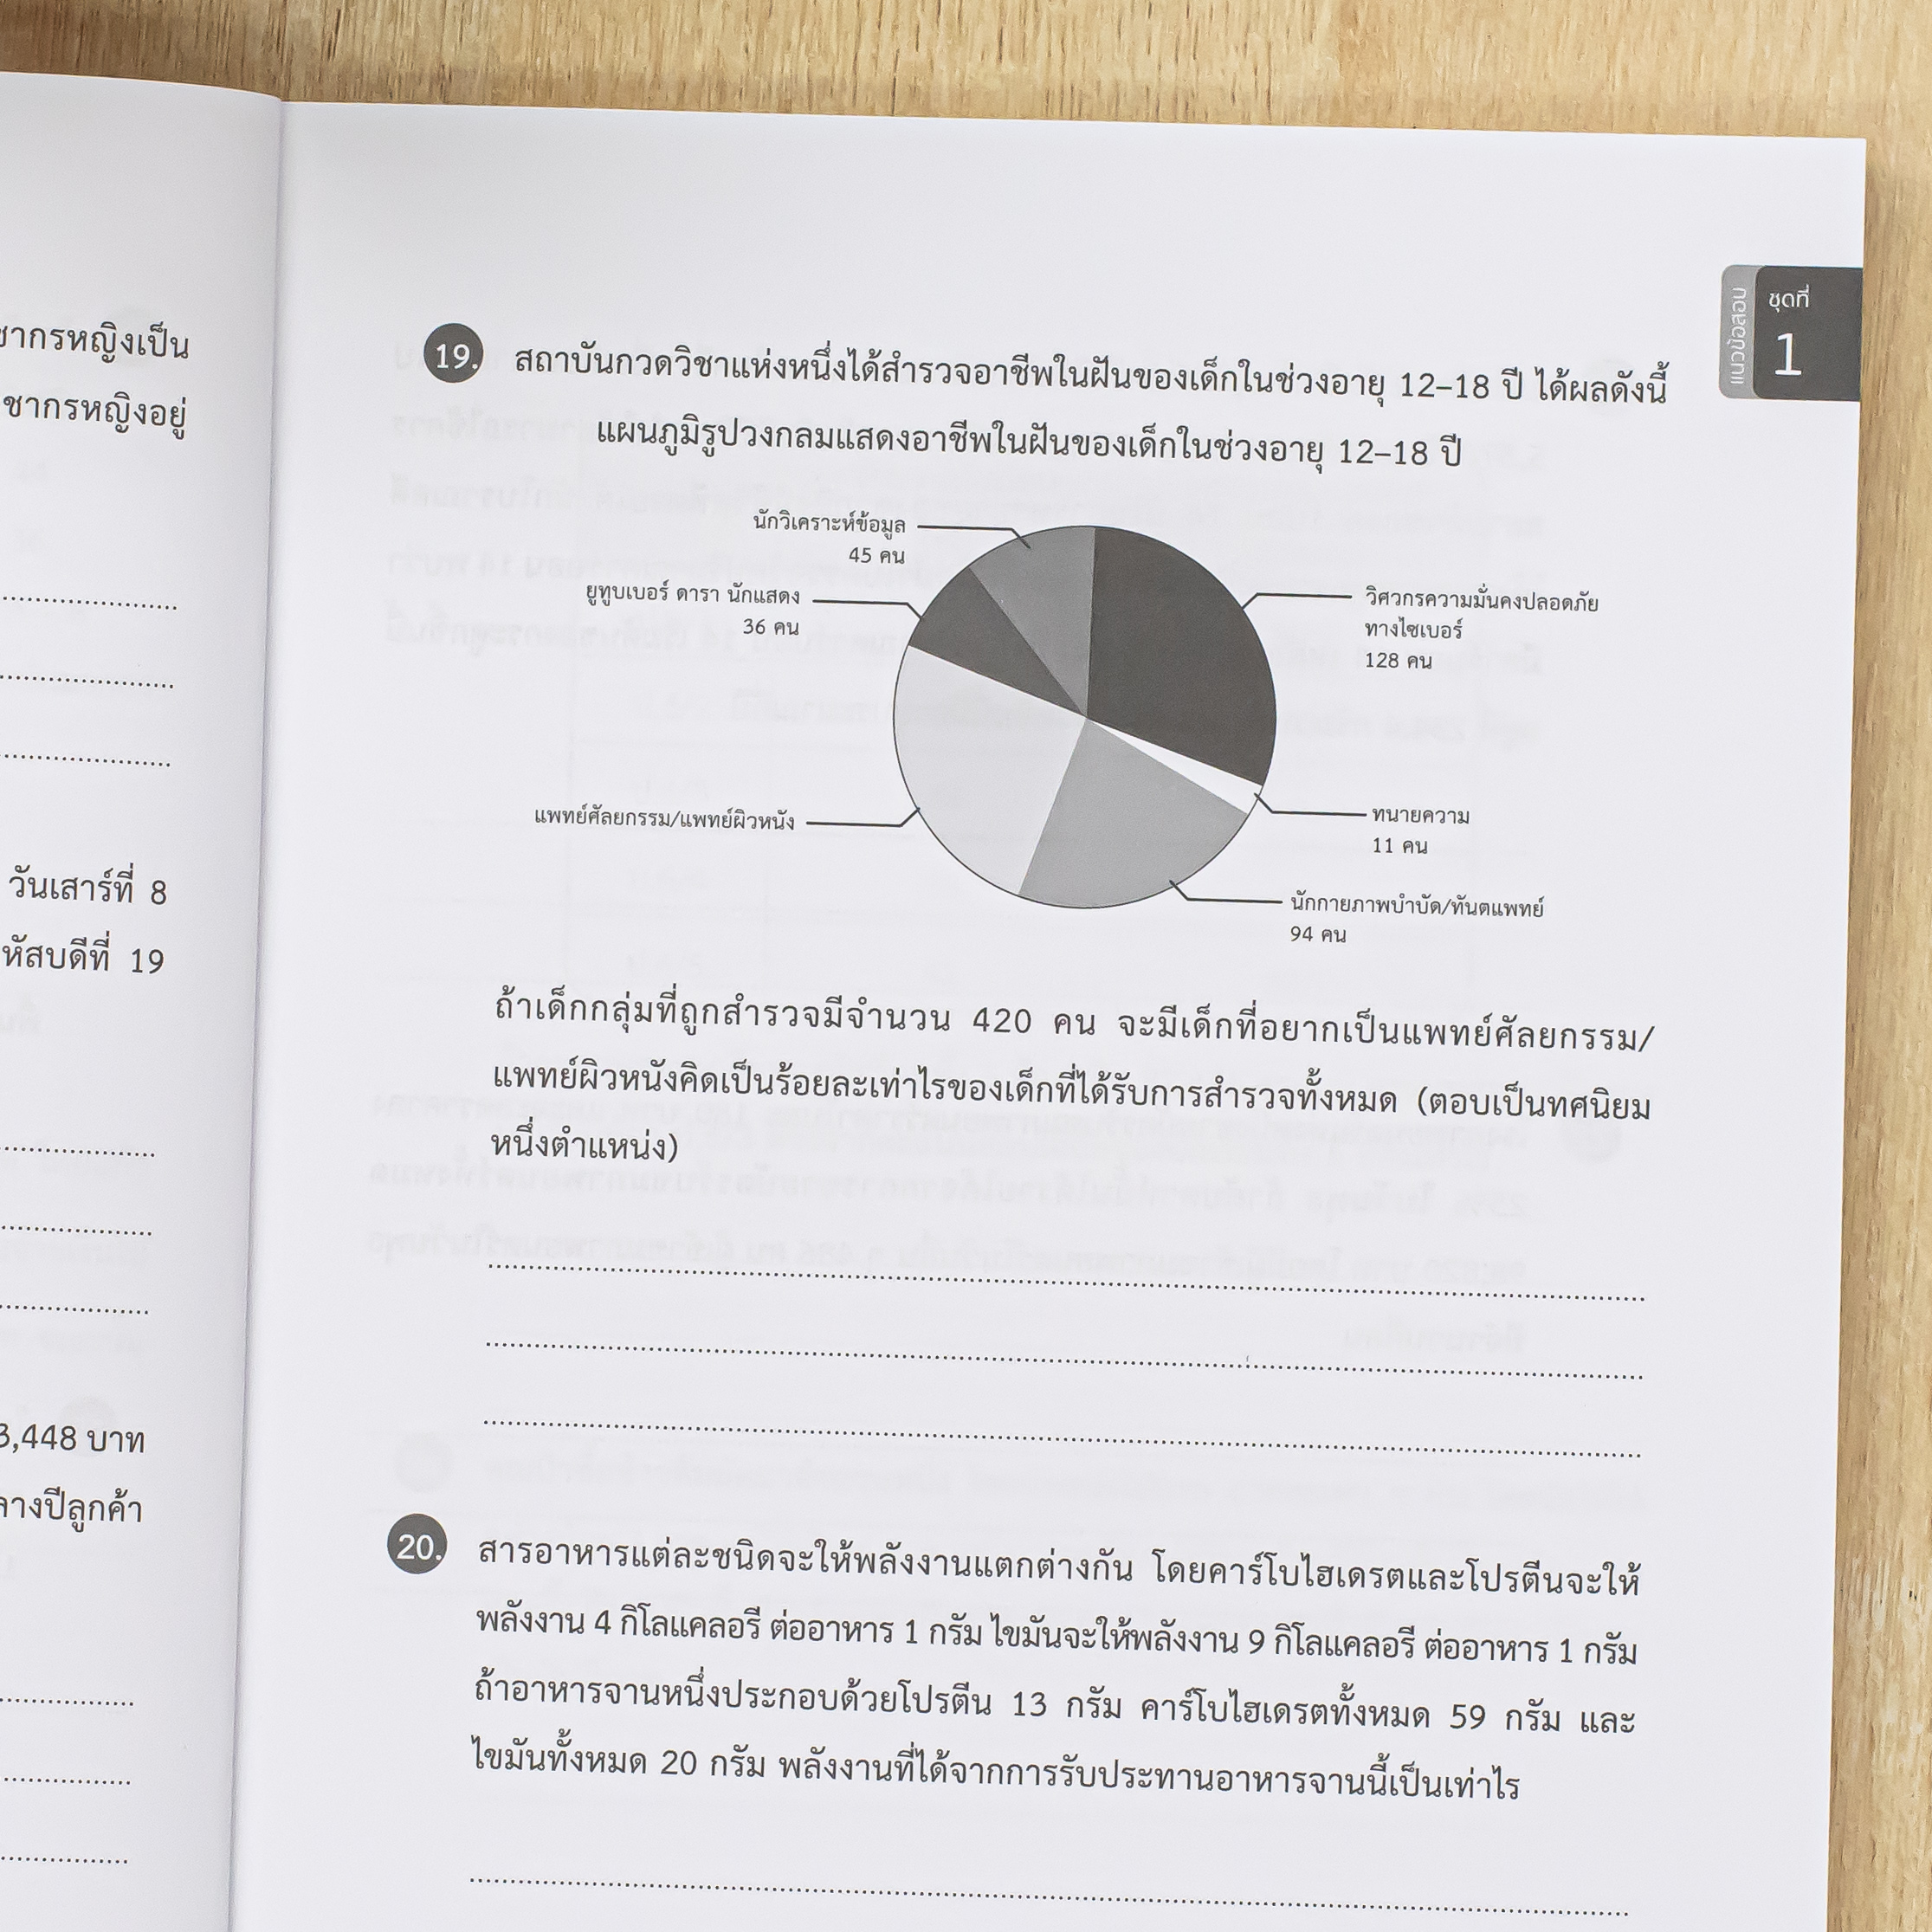 ชากรหญิงเป็น
ชากรหญิงอยู่
วันเสาร์ที่ 8
หัสบดีที่ 19
3,448 บาท
ลางปีลูกค้า
แนวข้อสอบ
ชุดที่
1
19. สถาบันกวดวิชาแห่งหนึ่งได้สำรวจอาชีพในฝันของเด็กในช่วงอายุ 12–18 ปี ได้ผลดังนี้
แผนภูมิรูปวงกลมแสดงอาชีพในฝันของเด็กในช่วงอายุ 12–18 ปี
นักวิเคราะห์ข้อมูล
45 คน
ยูทูบเบอร์ ดารา นักแสดง
36 คน
วิศวกรความมั่นคงปลอดภัย
ทางไซเบอร์
128 คน
แพทย์ศัลยกรรม/แพทย์ผิวหนัง
ทนายความ
11 คน
นักกายภาพบำบัด/ทันตแพทย์
94 คน
ถ้าเด็กกลุ่มที่ถูกสำรวจมีจำนวน 420 คน จะมีเด็กที่อยากเป็นแพทย์ศัลยกรรม/
แพทย์ผิวหนังคิดเป็นร้อยละเท่าไรของเด็กที่ได้รับการสำรวจทั้งหมด (ตอบเป็นทศนิยม
หนึ่งตำแหน่ง)
20. สารอาหารแต่ละชนิดจะให้พลังงานแตกต่างกัน โดยคาร์โบไฮเดรตและโปรตีนจะให้
พลังงาน 4 กิโลแคลอรี ต่ออาหาร 1 กรัม ไขมันจะให้พลังงาน 9 กิโลแคลอรี ต่ออาหาร 1 กรัม
ถ้าอาหารจานหนึ่งประกอบด้วยโปรตีน 13 กรัม คาร์โบไฮเดรตทั้งหมด 59 กรัม และ
ไขมันทั้งหมด 20 กรัม พลังงานที่ได้จากการรับประทานอาหารจานนี้เป็นเท่าไร